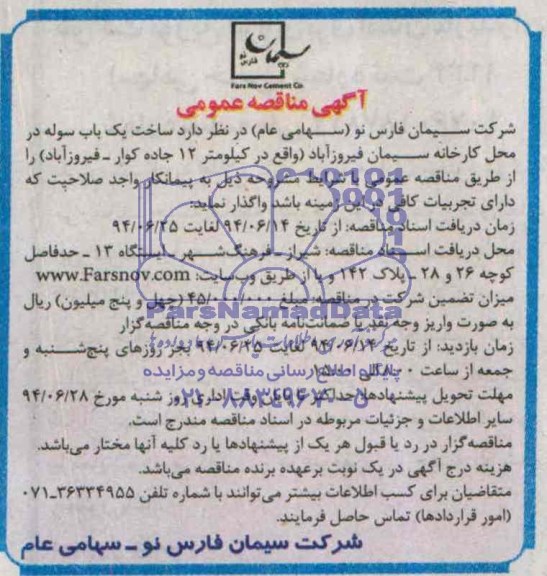 سیمان
فارس نو
Fars Nov Cement Co.
آگهی مناقصه عمومی
شرکت سیمان فارس نو (سهامی عام) در نظر دارد ساخت یک باب سوله در
محل کارخانه سیمان فیروزآباد (واقع در کیلومتر ۱۲ جاده کوار ـ فیروزآباد) را
از طریق مناقصه عمومی با شرایط مشروحه ذیل به پیمانکار واجد صلاحیت که
دارای تجربیات کافی در این زمینه باشد واگذار نماید:
زمان دریافت اسناد مناقصه: از تاریخ ۹۴/۰۶/۱۴ لغایت ۹۴/۰۶/۲۵
محل دریافت اسناد مناقصه: شیراز ـ فرهنگ‌شهر ـ ایستگاه ۱۳ ـ حدفاصل
کوچه ۲۶ و ۲۸ ـ پلاک ۱۴۲ و یا از طریق وب‌سایت: www.Farsnov.com
میزان تضمین شرکت در مناقصه: مبلغ ۴۵/۰۰۰/۰۰۰ (چهل و پنج میلیون) ریال
ParsNamadData
به صورت واریز وجه نقد یا ضمانت‌نامه بانکی در وجه مناقصه‌گزار
زمان بازدید: از تاریخ ۹۴/۰۶/۱۴ لغایت ۹۴/۰۶/۲۵ بجز روزهای پنج‌شنبه و
جمعه از ساعت ۸:۰۰ الی ۱۵:۰۰
پایگاه اطلاع رسانی مناقصه و مزایده
مهلت تحویل پیشنهادها: حداکثر تا پایان وقت اداری روز شنبه مورخ ۹۴/۰۶/۲۸
۰۲۱-۸۸۳۴۹۶۷۰-۵
سایر اطلاعات و جزئیات مربوطه در اسناد مناقصه مندرج است.
مناقصه‌گزار در رد یا قبول هر یک از پیشنهادها یا رد کلیه آنها مختار می‌باشد.
هزینه درج آگهی در یک نوبت برعهده برنده مناقصه می‌باشد.
متقاضیان برای کسب اطلاعات بیشتر می‌توانند با شماره تلفن ۳۶۳۳۴۹۵۵-۰۷۱
(امور قراردادها) تماس حاصل فرمایند.
شرکت سیمان فارس نو ـ سهامی عام